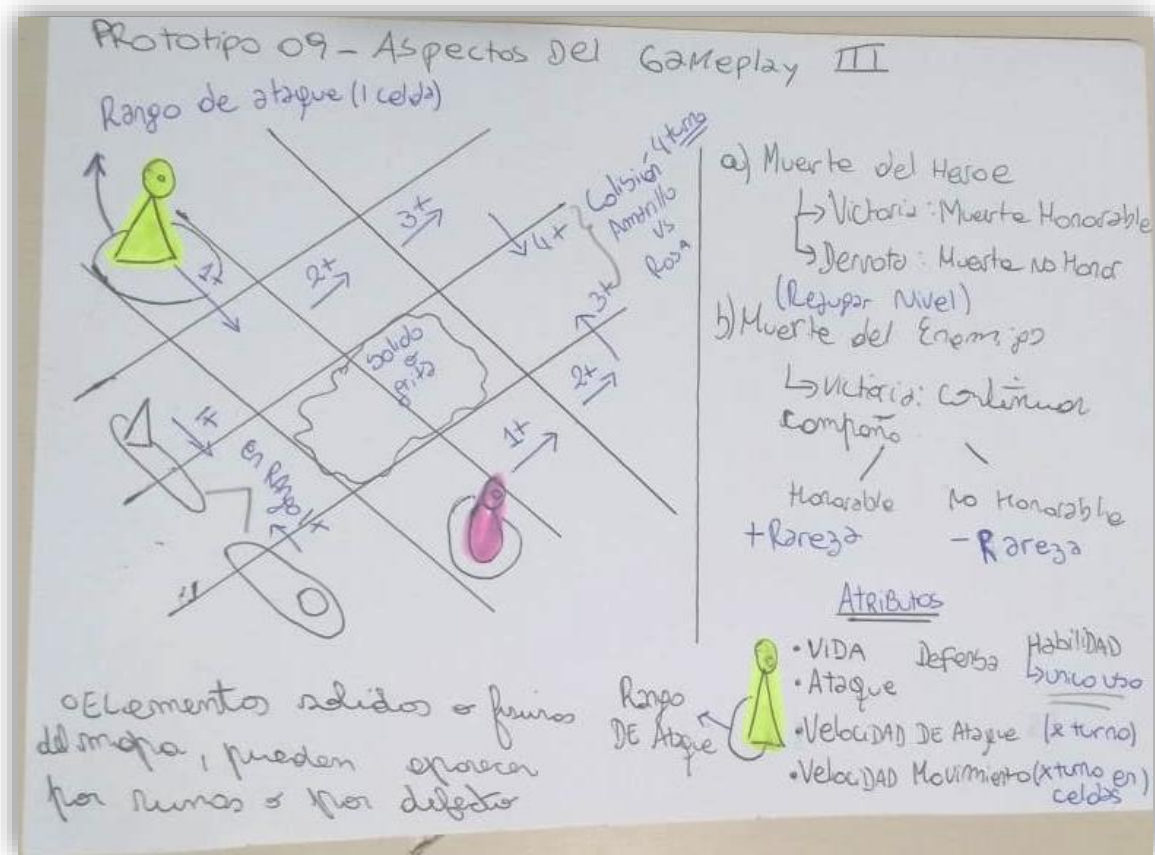 PROTOTIPO 09 - ASPECTOS DEL GAMEPLAY III
Rango de ataque (1 celda)
1+
2+
3+
4+
Colisión 4 turno
Amarillo
vs
Rosa
3+
2+
1+
Solido
o
1+
en Rango 1+
a) Muerte del Heroe
↳ Victoria: Muerte Honorable
↳ Derrota: Muerte No Honor
(Rejugar Nivel)
b) Muerte del Enemigo
↳ Victoria: continuar
campaña
Honorable
+ Rareza
No Honorable
- Rareza
ATRIBUTOS
• VIDA Defensa Habilidad
↳ unico uso
• Ataque
• Velocidad De Ataque (x turno)
• Velocidad Movimiento (x turno en)
celdas
Rango
DE Ataque
o Elementos solidos o
del mapa, pueden aparecer
por runas o por defecto